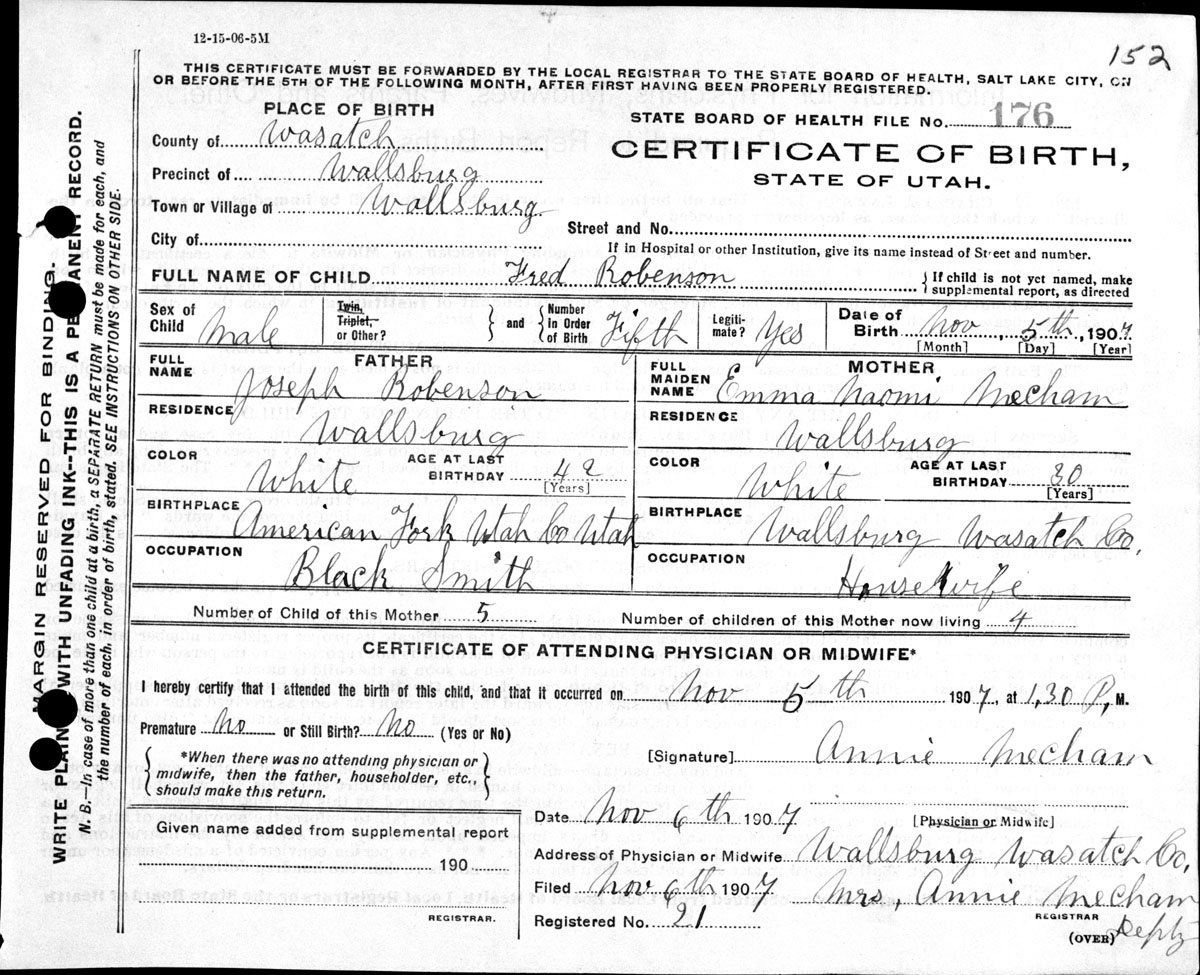 12-15-06-5M
152
THIS CERTIFICATE MUST BE FORWARDED BY THE LOCAL REGISTRAR TO THE STATE BOARD OF HEALTH, SALT LAKE CITY, ON
OR BEFORE THE 5TH OF THE FOLLOWING MONTH, AFTER FIRST HAVING BEEN PROPERLY REGISTERED.
PLACE OF BIRTH
County of Wasatch
Precinct of Wallsburg
Town or Village of Wallsburg
City of
STATE BOARD OF HEALTH FILE No. 176
CERTIFICATE OF BIRTH,
STATE OF UTAH.
Street and No.
If in Hospital or other Institution, give its name instead of Street and number.
FULL NAME OF CHILD Fred Robenson { If child is not yet named, make
supplemental report, as directed
Sex of Child Male Twin, Triplet, or Other? } and { Number in Order of Birth Fifth Legiti-mate? Yes Date of Birth Nov, 5th, 1907
[Month] [Day] [Year]
FATHER
FULL NAME Joseph Robenson
RESIDENCE Wallsburg
COLOR White AGE AT LAST BIRTHDAY 42
[Years]
BIRTHPLACE American Fork Utah Co Utah
OCCUPATION Black Smith
MOTHER
FULL MAIDEN NAME Emma Naomi Mecham
RESIDENCE Wallsburg
COLOR White AGE AT LAST BIRTHDAY 30
[Years]
BIRTHPLACE Wallsburg Wasatch Co,
OCCUPATION Housewife
Number of Child of this Mother 5 Number of children of this Mother now living 4
CERTIFICATE OF ATTENDING PHYSICIAN OR MIDWIFE*
I hereby certify that I attended the birth of this child, and that it occurred on Nov 5th 1907, at 1,30 P, M.
Premature No or Still Birth? No (Yes or No)
{ *When there was no attending physician or
midwife, then the father, householder, etc.,
should make this return. }
[Signature] Annie Mecham
Date Nov 6th 1907 [Physician or Midwife]
Given name added from supplemental report
190
REGISTRAR.
Address of Physician or Midwife Wallsburg Wasatch Co,
Filed Nov 6th 1907 Mrs, Annie Mecham
REGISTRAR
Registered No. 21
(OVER) Depty
MARGIN RESERVED FOR BINDING.
WRITE PLAIN WITH UNFADING INK--THIS IS A PE ANENT RECORD.
N. B.--In case of more than one child at a birth, a SEPARATE RETURN must be made for each, and
the number of each, in order of birth, stated. SEE INSTRUCTIONS ON OTHER SIDE.